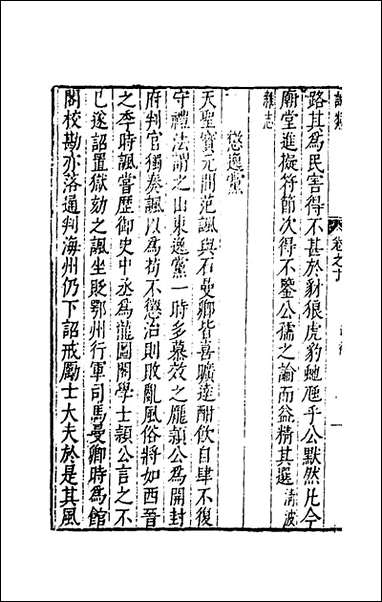 路其爲民害得不甚於豺狼虎豹虵虺乎公默然比今
廟堂進擬符節次得不鑒公孺之論而益精其選清波
雜志
懲逸黨
天聖寶元間范諷與石曼卿皆喜曠達酣飲自肆不復
守禮法謂之山東逸黨一時多慕效之龐潁公爲開封
府判官獨奏諷以爲苟不懲治則敗亂風俗將如西晉
之季時諷嘗歷御史中丞爲龍圖閣學士潁公言之不
已遂詔置獄劾之諷坐貶鄂州行軍司馬曼卿時爲館
閣校勘亦落通判海州仍下詔戒勵士大夫於是其風